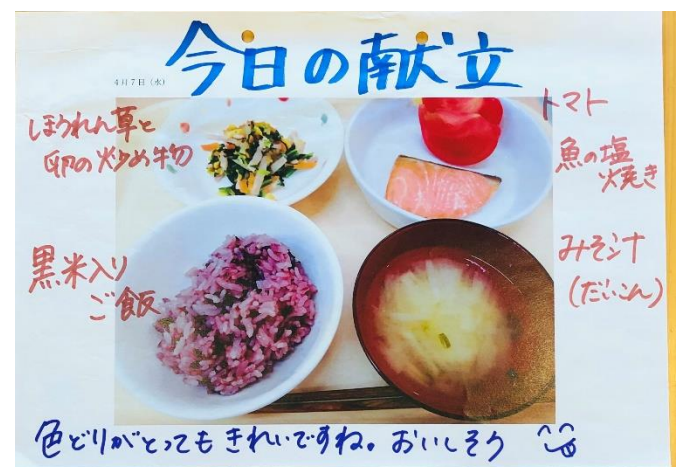 今日の献立
4月7日(水)
ほうれん草と
卵の炒め物
トマト
魚の塩
焼き
黒米入り
ご飯
みそ汁
(だいこん)
色どりがとってもきれいですね。おいしそう